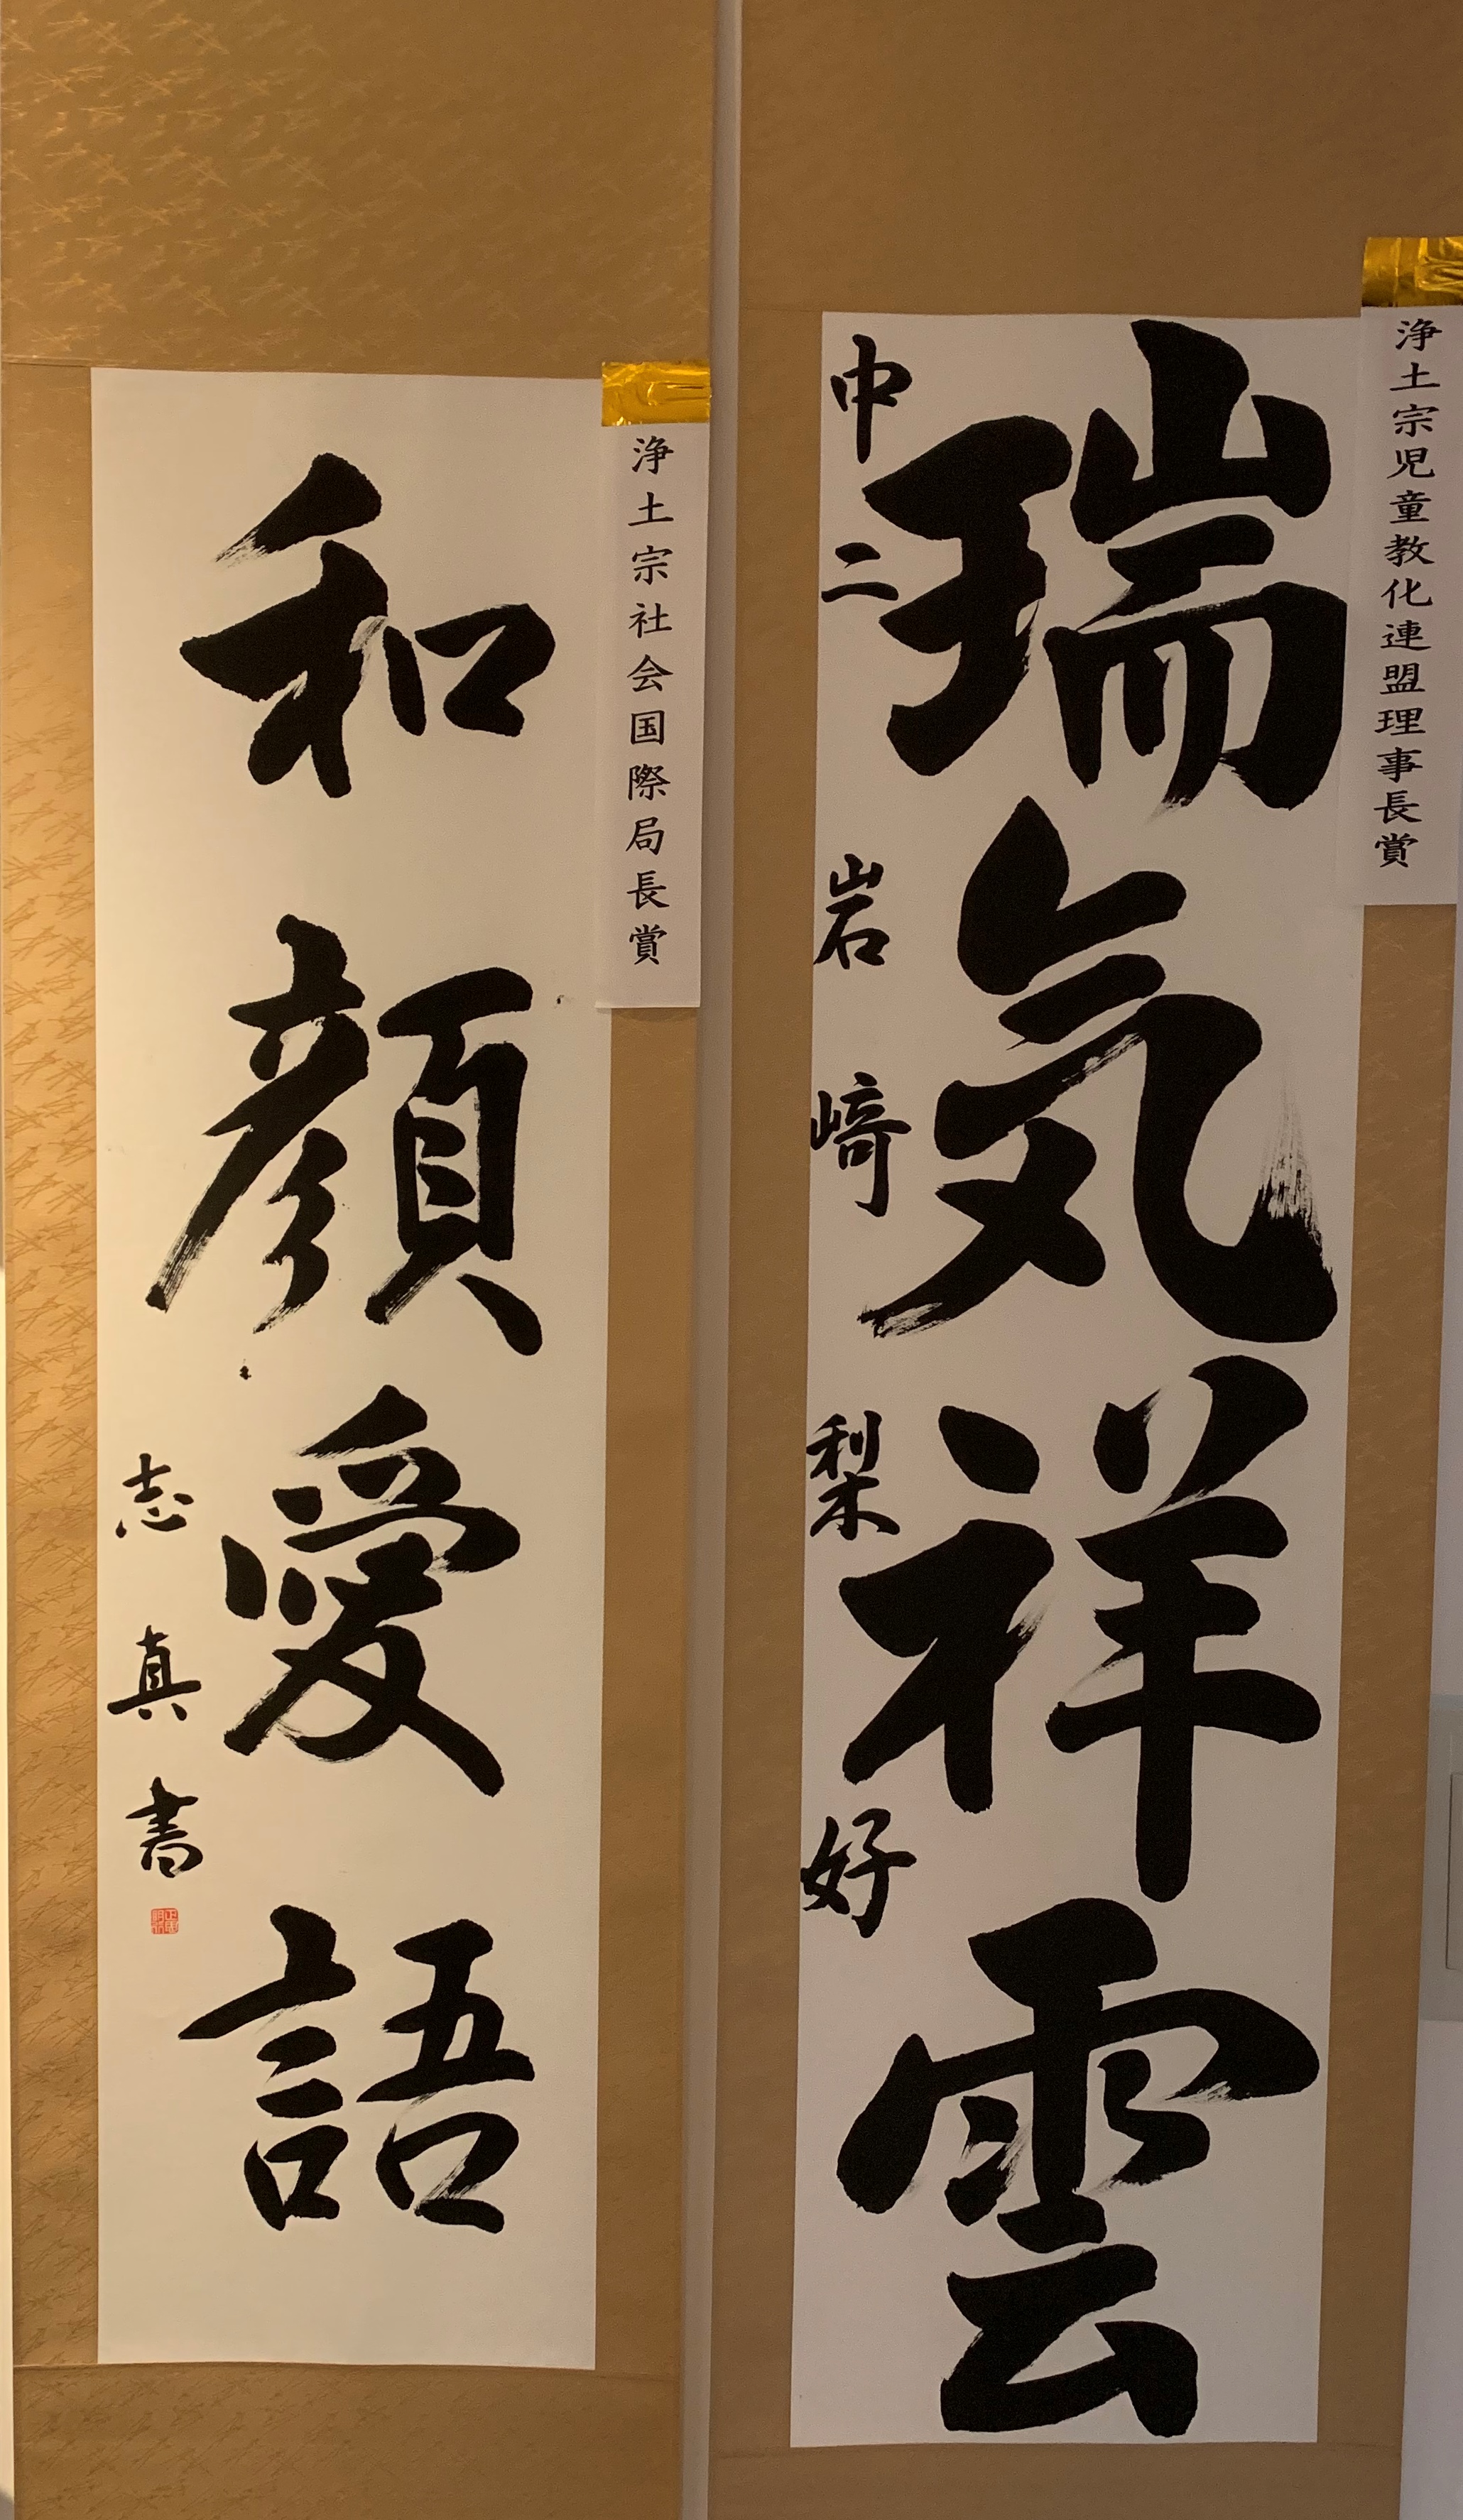 浄土宗児童教化連盟理事長賞
瑞気祥雲
中二 岩﨑梨好
浄土宗社会国際局長賞
和顔愛語
志真書